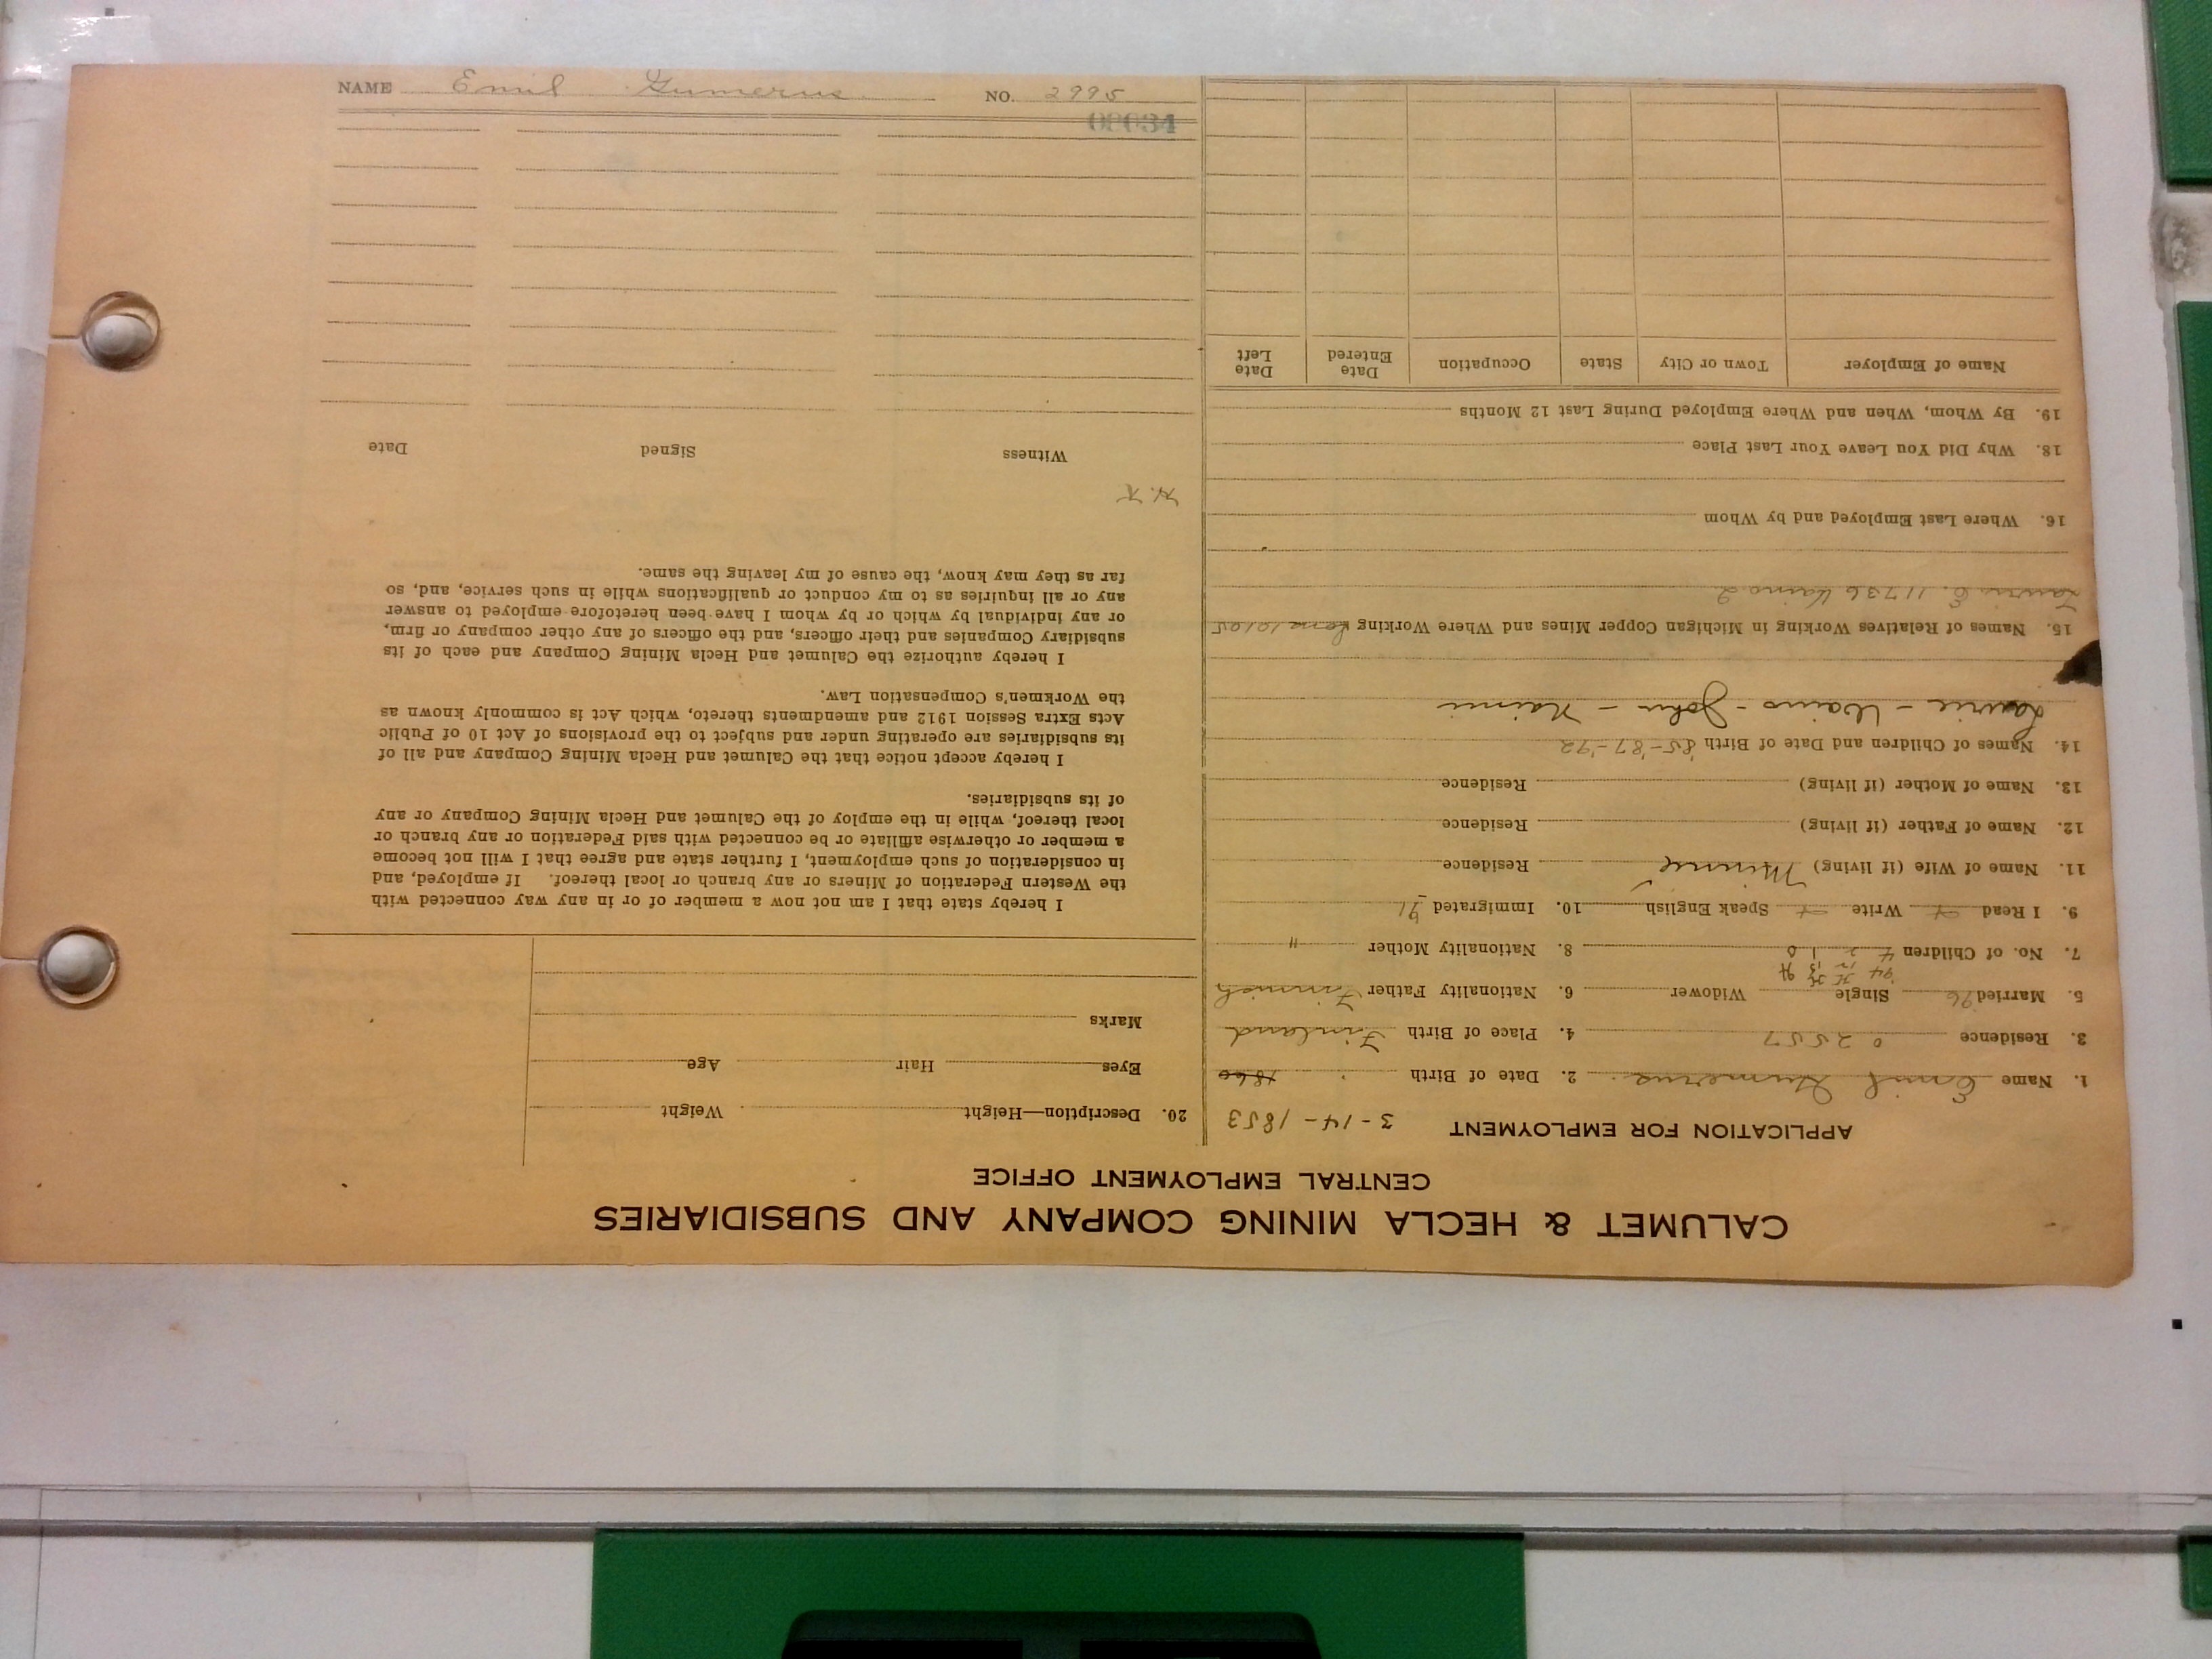 CALUMET & HECLA MINING COMPANY AND SUBSIDIARIES
CENTRAL EMPLOYMENT OFFICE
APPLICATION FOR EMPLOYMENT 3-14-1853
1. Name Emil Gumerus 2. Date of Birth 1860
3. Residence 02557 4. Place of Birth Finland
5. Married 96 Single Widower 6. Nationality Father Finnish
7. No. of Children 4 2 1 0 8. Nationality Mother "
9. I Read Write Speak English 10. Immigrated 91
11. Name of Wife (if living) Minnie Residence
12. Name of Father (if living) Residence
13. Name of Mother (if living) Residence
14. Names of Children and Date of Birth 85-'87-'92
Laurie - Waino - John - Naimi
15. Names of Relatives Working in Michigan Copper Mines and Where Working
Laurie E. 11736 Waino
16. Where Last Employed and by Whom
18. Why Did You Leave Your Last Place
19. By Whom, When and Where Employed During Last 12 Months
Name of Employer Town or City State Occupation Date Entered Date Left
20. Description—Height Weight
Eyes Hair Age
Marks
I hereby state that I am not now a member of or in any way connected with
the Western Federation of Miners or any branch or local thereof. If employed, and
in consideration of such employment, I further state and agree that I will not become
a member or otherwise affiliate or be connected with said Federation or any branch or
local thereof, while in the employ of the Calumet and Hecla Mining Company or any
of its subsidiaries.
I hereby accept notice that the Calumet and Hecla Mining Company and all of
its subsidiaries are operating under and subject to the provisions of Act 10 of Public
Acts Extra Session 1912 and amendments thereto, which Act is commonly known as
the Workmen's Compensation Law.
I hereby authorize the Calumet and Hecla Mining Company and each of its
subsidiary Companies and their officers, and the officers of any other company or firm,
or any individual by which or by whom I have been heretofore employed to answer
any or all inquiries as to my conduct or qualifications while in such service, and, so
far as they may know, the cause of my leaving the same.
Witness Signed Date
08034
NAME Emil Gumerus NO. 2995